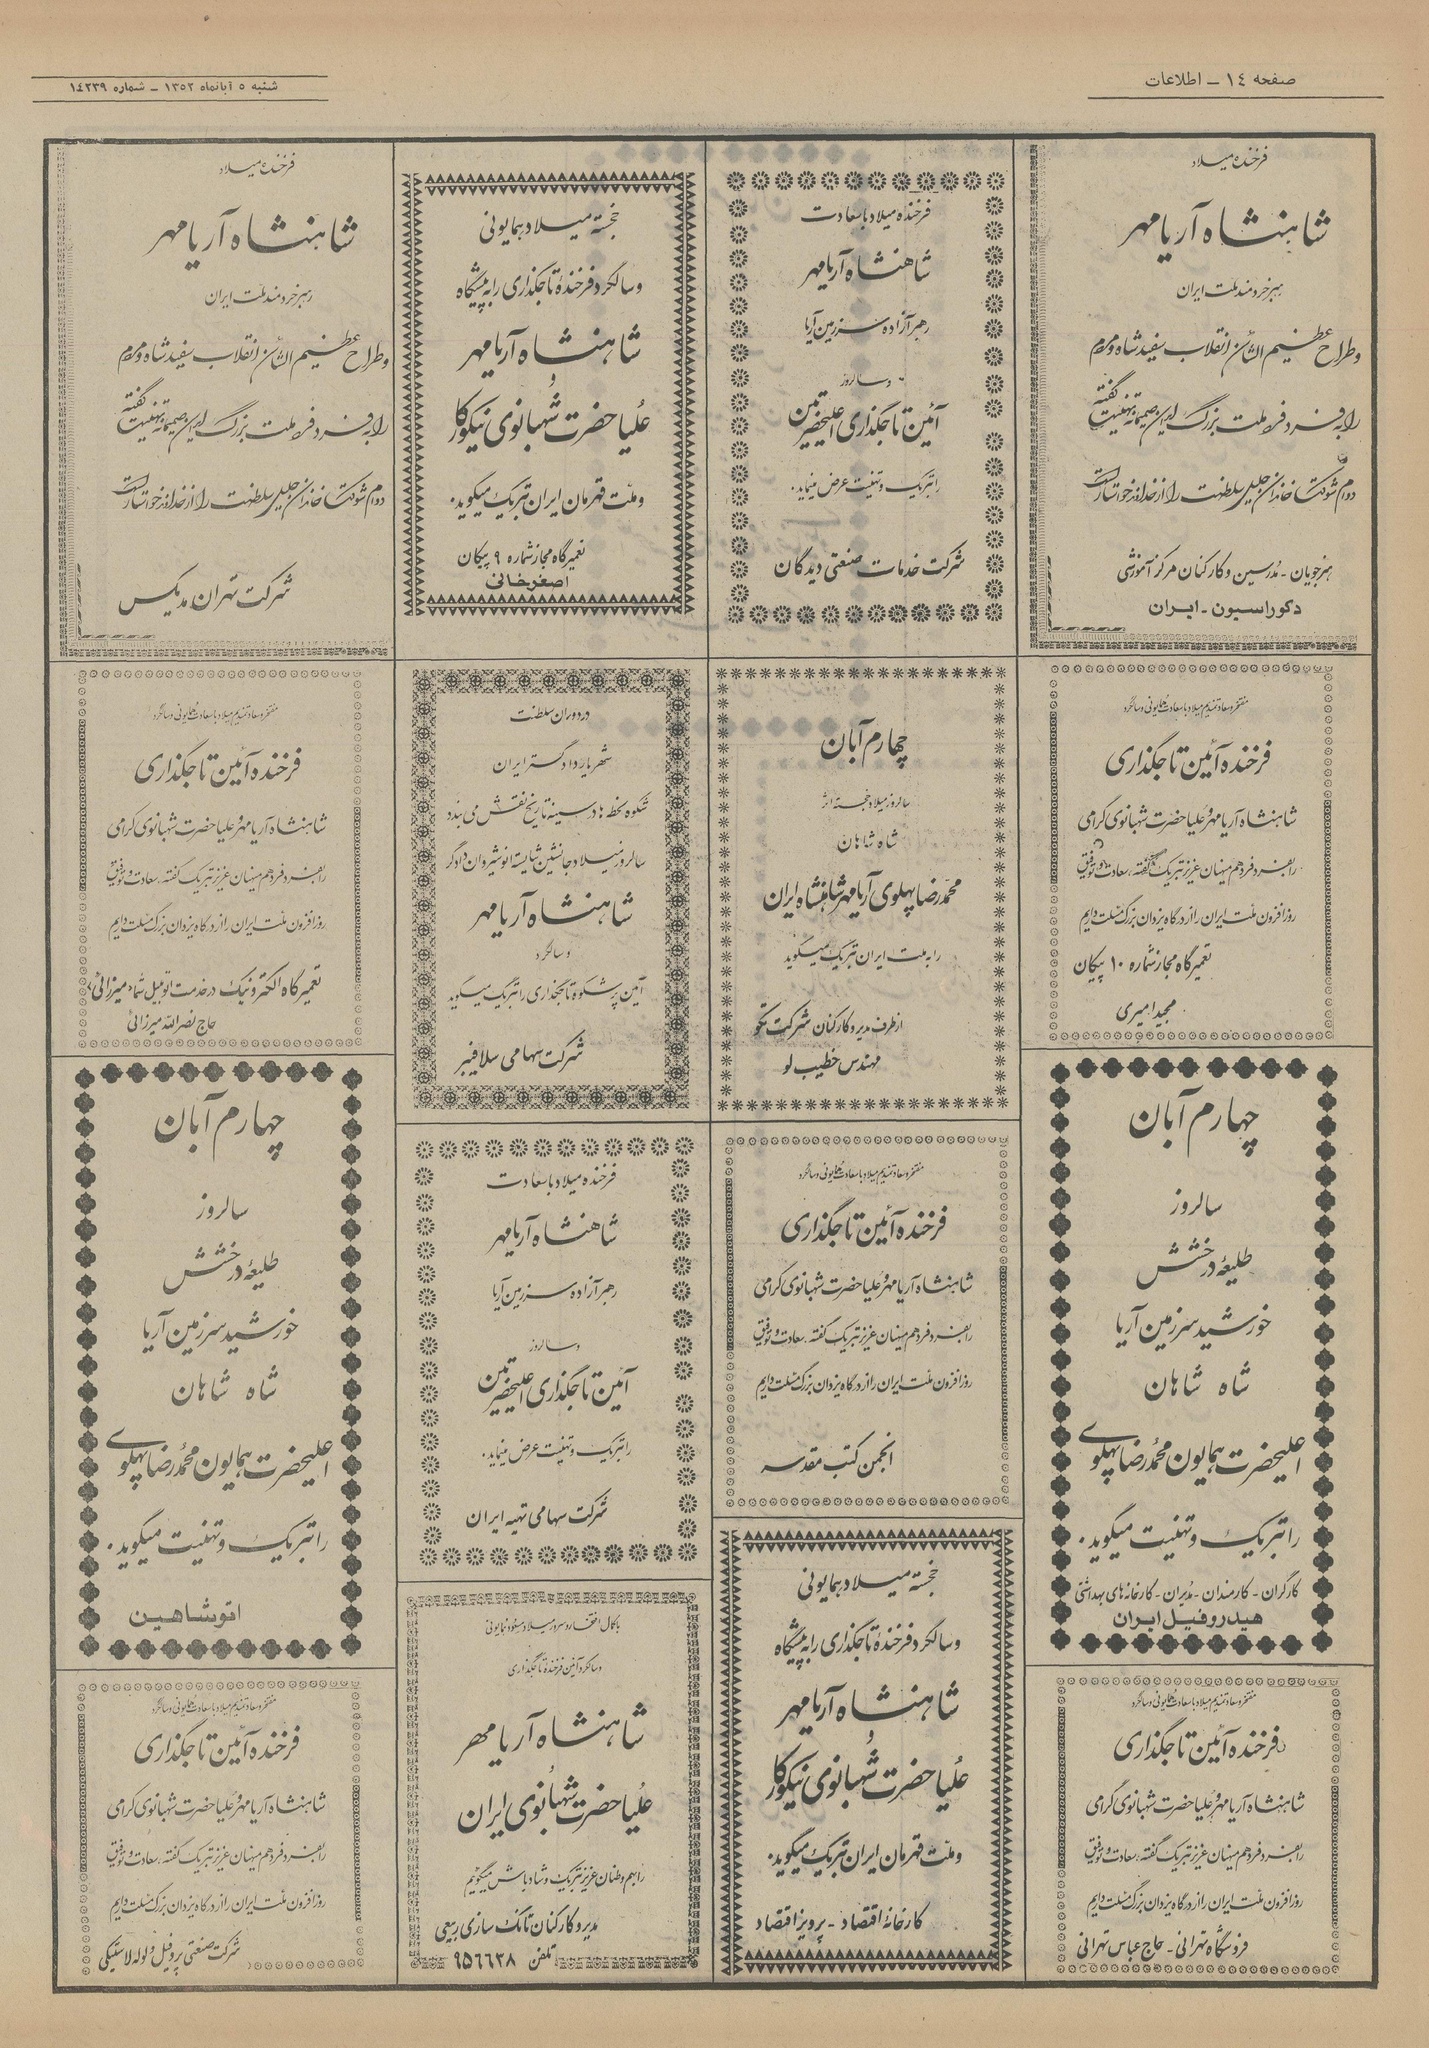 صفحه ۱۴ - اطلاعات
شنبه ۵ آبانماه ۱۳۵۲ - شماره ۱۴۲۳۹
فرخنده میلاد
شاهنشاه آریامهر
رهبر خردمند ملت ایران
وطراح عظیم الشأن انقلاب سفید شاه و مردم
را به فرد فرد ملت بزرگ ایران صمیمانه تهنیت گفته
دوام شوکت خاندان جلیل سلطنت را از خداوند خواستار است
هنرجویان - مدرسین و کارکنان مرکز آموزشی
دکوراسیون - ایران
فرخنده میلاد با سعادت
شاهنشاه آریامهر
رهبر آزاده سرزمین آریا
و سالروز
آئین تاجگذاری اعلیحضرتین
را تبریک و تهنیت عرض مینماید.
شرکت خدمات صنعتی دیدگان
خجسته میلاد همایونی
و سالگرد فرخنده تاجگذاری را به پیشگاه
شاهنشاه آریامهر
و
علیاحضرت شهبانوی نیکوکار
و ملت قهرمان ایران تبریک میگوید.
تعمیرگاه مجاز شماره ۹ پیکان
اصغرخانی
فرخنده میلاد
شاهنشاه آریامهر
رهبر خردمند ملت ایران
وطراح عظیم الشأن انقلاب سفید شاه و مردم
را به فرد فرد ملت بزرگ ایران صمیمانه تهنیت گفته
دوام شوکت خاندان جلیل سلطنت را از خداوند خواستار است
شرکت تهران مدیکس
مفتخر و سعادتمندیم میلاد با سعادت همایونی و سالگرد
فرخنده آئین تاجگذاری
شاهنشاه آریامهر و علیاحضرت شهبانوی گرامی
را بفرد فرد هم میهنان عزیز تبریک گفته، سعادت و توفیق
روزافزون ملت ایران را از درگاه یزدان بزرگ مسئلت داریم
تعمیرگاه مجاز شماره ۱۰ پیکان
مجید امیری
چهارم آبان
سالروز میلاد خجسته
شاه شاهان
محمدرضا پهلوی آریامهر شاهنشاه ایران
را به ملت ایران تبریک میگوید
از طرف مدیر و کارکنان شرکت تکو
مهندس خطیب لو
در دوران سلطنت
شهریار دادگستر ایران
شکوه لحظه ها در سینه تاریخ نقش می بندد
سالروز میلاد جانشین شایسته انوشیروان دادگر
شاهنشاه آریامهر
و سالگرد
آئین پرشکوه تاجگذاری را تبریک میگوید
شرکت سهامی سلافیبر
مفتخر و سعادتمندیم میلاد با سعادت همایونی و سالگرد
فرخنده آئین تاجگذاری
شاهنشاه آریامهر و علیاحضرت شهبانوی گرامی
را بفرد فرد هم میهنان عزیز تبریک گفته، سعادت و توفیق
روزافزون ملت ایران را از درگاه یزدان بزرگ مسئلت داریم
تعمیرگاه الکترونیک در خدمت اتومبیل شما «میرزائی»
حاج نصرالله میرزائی
چهارم آبان
سالروز
طلیعه درخشش
خورشید سرزمین آریا
شاه شاهان
اعلیحضرت همایون محمدرضا پهلوی
را تبریک و تهنیت میگوید.
کارگران - کارمندان - مدیران - کارخانه های بهداشتی
هیدروفیل ایران
مفتخر و سعادتمندیم میلاد با سعادت همایونی و سالگرد
فرخنده آئین تاجگذاری
شاهنشاه آریامهر و علیاحضرت شهبانوی گرامی
را بفرد فرد هم میهنان عزیز تبریک گفته، سعادت و توفیق
روزافزون ملت ایران را از درگاه یزدان بزرگ مسئلت داریم
انجمن کتب مقدسه
فرخنده میلاد با سعادت
شاهنشاه آریامهر
رهبر آزاده سرزمین آریا
و سالروز
آئین تاجگذاری اعلیحضرتین
را تبریک و تهنیت عرض مینماید.
شرکت سهامی تهیه ایران
چهارم آبان
سالروز
طلیعه درخشش
خورشید سرزمین آریا
شاه شاهان
اعلیحضرت همایون محمدرضا پهلوی
را تبریک و تهنیت میگوید.
اتوشاهین
مفتخر و سعادتمندیم میلاد با سعادت همایونی و سالگرد
فرخنده آئین تاجگذاری
شاهنشاه آریامهر و علیاحضرت شهبانوی گرامی
را بفرد فرد هم میهنان عزیز تبریک گفته، سعادت و توفیق
روزافزون ملت ایران را از درگاه یزدان بزرگ مسئلت داریم
فروشگاه تهرانی - حاج عباس تهرانی
خجسته میلاد همایونی
و سالگرد فرخنده تاجگذاری را به پیشگاه
شاهنشاه آریامهر
و
علیاحضرت شهبانوی نیکوکار
و ملت قهرمان ایران تبریک میگوید.
کارخانه اقتصاد - پرویز اقتصاد
با کمال افتخار و سرور میلاد مسعود همایونی
و سالگرد آئین فرخنده تاجگذاری
شاهنشاه آریامهر
و
علیاحضرت شهبانوی ایران
را بهم وطنان عزیز تبریک و شادباش میگوئیم
مدیر و کارکنان تانک سازی ربیعی
تلفن ۹۵۶۶۳۸
مفتخر و سعادتمندیم میلاد با سعادت همایونی و سالگرد
فرخنده آئین تاجگذاری
شاهنشاه آریامهر و علیاحضرت شهبانوی گرامی
را بفرد فرد هم میهنان عزیز تبریک گفته، سعادت و توفیق
روزافزون ملت ایران را از درگاه یزدان بزرگ مسئلت داریم
شرکت صنعتی پروفیل و لوله لاستیکی